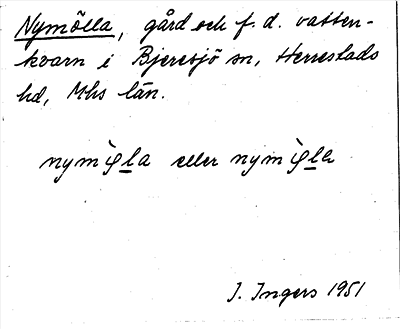 Nymölla, gård och f. d. vatten-
kvarn i Bjeresjö sn, Herrestads
hd, Mhs län.
nymø̀la eller nymø̀la
I. Ingers 1951